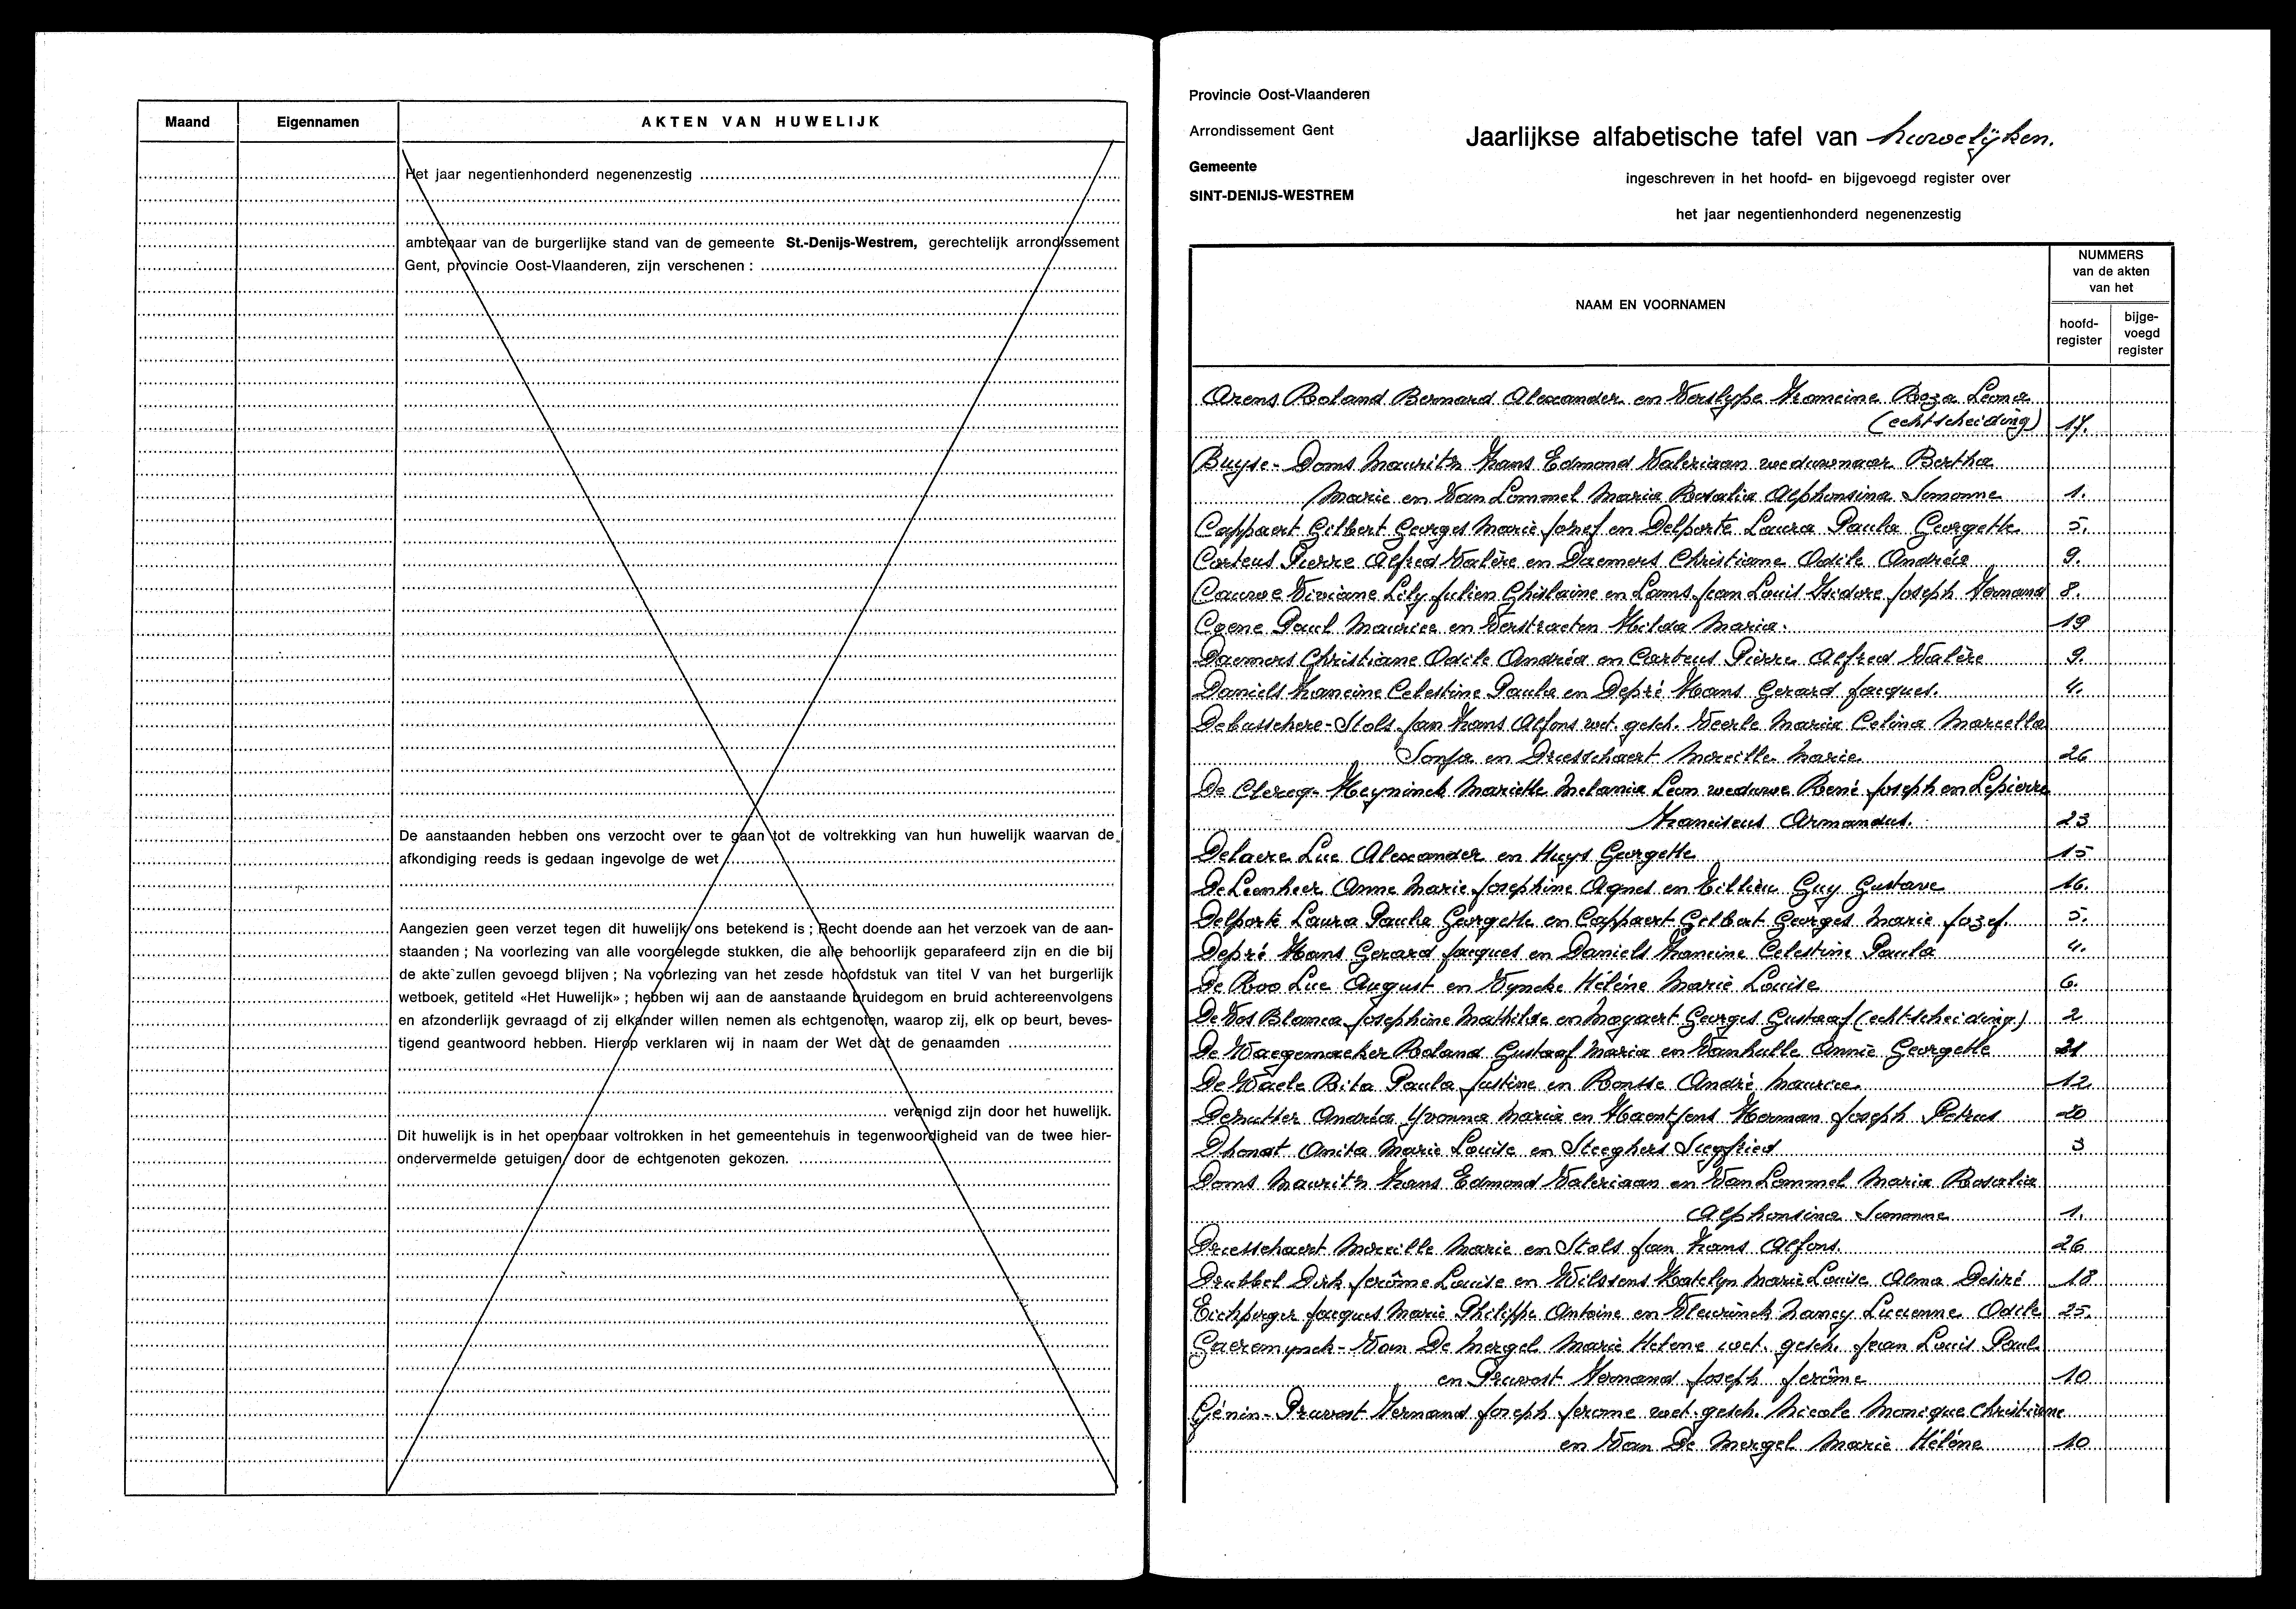 Maand Eigennamen AKTEN VAN HUWELIJK
Het jaar negentienhonderd negenenzestig
ambtenaar van de burgerlijke stand van de gemeente St.-Denijs-Westrem, gerechtelijk arrondissement
Gent, provincie Oost-Vlaanderen, zijn verschenen :
De aanstaanden hebben ons verzocht over te gaan tot de voltrekking van hun huwelijk waarvan de
afkondiging reeds is gedaan ingevolge de wet
Aangezien geen verzet tegen dit huwelijk ons betekend is ; Recht doende aan het verzoek van de aan-
staanden ; Na voorlezing van alle voorgelegde stukken, die alle behoorlijk geparafeerd zijn en die bij
de akte zullen gevoegd blijven ; Na voorlezing van het zesde hoofdstuk van titel V van het burgerlijk
wetboek, getiteld «Het Huwelijk» ; hebben wij aan de aanstaande bruidegom en bruid achtereenvolgens
en afzonderlijk gevraagd of zij elkander willen nemen als echtgenoten, waarop zij, elk op beurt, beves-
tigend geantwoord hebben. Hierop verklaren wij in naam der Wet dat de genaamden
verenigd zijn door het huwelijk.
Dit huwelijk is in het openbaar voltrokken in het gemeentehuis in tegenwoordigheid van de twee hier-
ondervermelde getuigen, door de echtgenoten gekozen.
Provincie Oost-Vlaanderen
Arrondissement Gent
Gemeente
SINT-DENIJS-WESTREM
Jaarlijkse alfabetische tafel van huwelijken.
ingeschreven in het hoofd- en bijgevoegd register over
het jaar negentienhonderd negenenzestig
NAAM EN VOORNAMEN
NUMMERS
van de akten
van het
hoofd-
register
bijge-
voegd
register
Arens Roland Bernard Alexander en Verslype Francine Roza Leona
(echtscheiding) 17.
Buyse - Doms Maurits Frans Edmond Valeriaan weduwnaar Bertha
Marie en Van Lommel Maria Rosalia Alphonsina Simonne 1.
Cappaert Gilbert Georges Marie Jozef en Delporte Laura Paula Georgette 5.
Carteus Pierre Alfred Valère en Daemers Christiane Odile Andréa 9.
Cauwe Viviane Lily Julien Ghislaine en Lams Jean Louis Isidore Joseph Fernand 8.
Coene Paul Maurice en Verstraeten Hilda Maria. 19
Daemers Christiane Odile Andréa en Carteus Pierre Alfred Valère 9.
Daniels Francine Celestine Paula en Depré Hans Gerard Jacques. 4.
Debusschere - Stols Jan Frans Alfons wet. gesch. Veerle Maria Celina Marcella
Sonja en Driesschaert Mireille Marie 26
De Clercq - Heyninck Mariette Melania Leon weduwe René Joseph en Lepierre
Franciscus Armandus. 23
Delaere Luc Alexander en Huys Georgette 15
De Leenheer Anne Marie Josephine Agnes en Tillieu Guy Gustave 16.
Delporte Laura Paula Georgette en Cappaert Gilbert Georges Marie Jozef. 5.
Depré Hans Gerard Jacques en Daniels Francine Celestine Paula 4.
De Roo Luc August en Vyncke Hélène Marie Louise 6.
De Vos Blanca Josephine Mathilde en Magaert Georges Gustaaf (echtscheiding) 2
De Waegemaeker Roland Gustaaf Maria en Vanhulle Annie Georgette 21
De Waele Rita Paula Justine en Rontse André Maurice. 12.
Deruther Andréa Yvonna Maria en Haentjens Herman Joseph Petrus 20
Dhondt Anita Marie Louise en Steeghers Siegfried 3
Doms Maurits Frans Edmond Valeriaan en Van Lommel Maria Rosalia
Alphonsina Simonne 1.
Driesschaert Mireille Marie en Stols Jan Frans Alfons. 26
Drubbel Dirk Jerôme Louise en Wilssens Katelyn Marie Louise Alma Desiré 18
Eichperger Jacques Marie Philippe Antoine en Vleurinck Nancy Lucienne Odile 25.
Gaeremynck - Van De Mergel Marie Helene wet. gesch. Jean Louis Paul
en Pruvost Fernand Joseph Jerôme 10
Génin - Pruvost Fernand Joseph Jerome wet. gesch. Nicole Monique Christiane
en Van De Mergel Marie Hélène 10